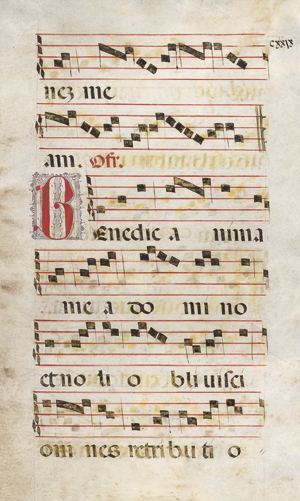 cxxix
nez me
am. Ofr.
Benedic a nima
me a do mi no
et no li o bli uisci
om nes retribu ti o